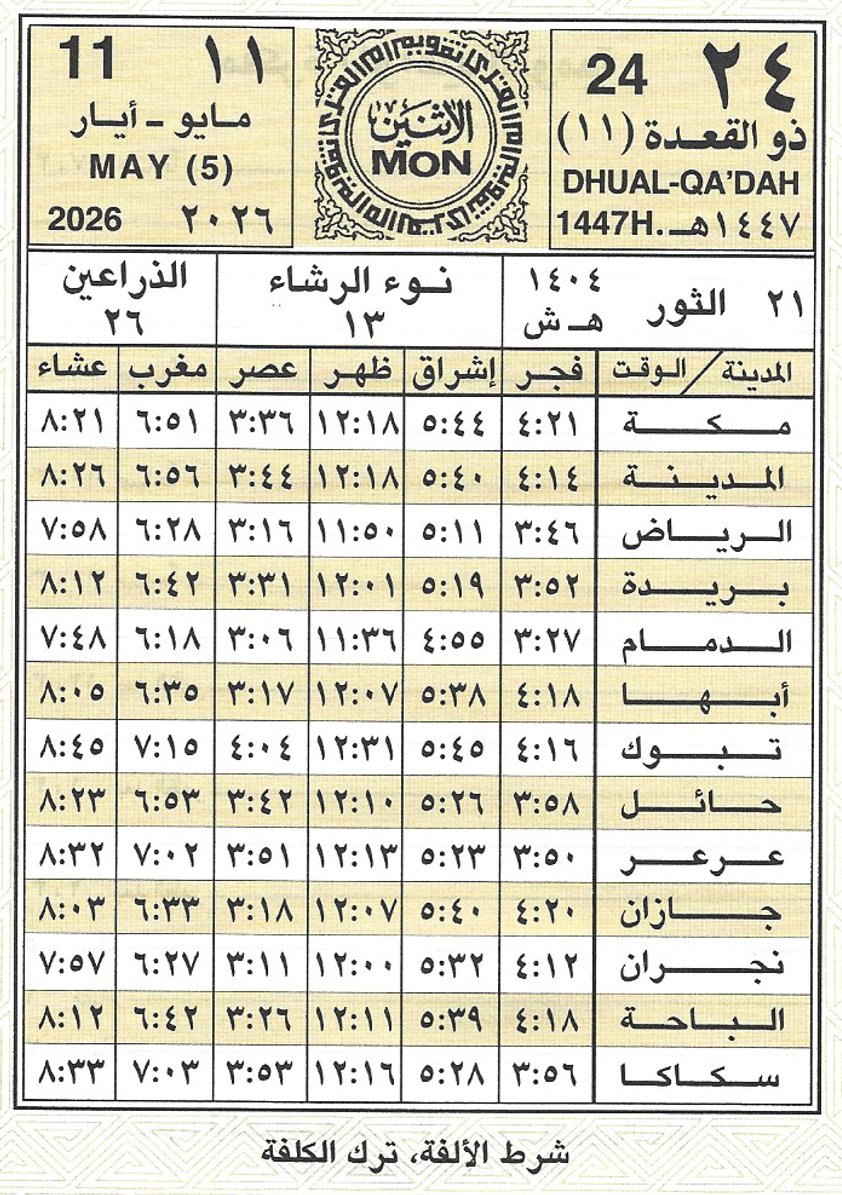 ٢٤ 24
ذو القعدة (١١)
DHUAL-QA'DAH
١٤٤٧هـ. 1447H.
الاثنين
MON
تقويم أم القرى
١١ 11
مايو - أيار
MAY (5)
٢٠٢٦ 2026
٢١ الثور ١٤٠٤ هـ ش
نوء الرشاء ١٣
الذراعين ٢٦
المدينة / الوقت فجر إشراق ظهر عصر مغرب عشاء
مكة ٤:٢١ ٥:٤٤ ١٢:١٨ ٣:٣٦ ٦:٥١ ٨:٢١
المدينة ٤:١٤ ٥:٤٠ ١٢:١٨ ٣:٤٤ ٦:٥٦ ٨:٢٦
الرياض ٣:٤٦ ٥:١١ ١١:٥٠ ٣:١٦ ٦:٢٨ ٧:٥٨
بريدة ٣:٥٢ ٥:١٩ ١٢:٠١ ٣:٣١ ٦:٤٢ ٨:١٢
الدمام ٣:٢٧ ٤:٥٥ ١١:٣٦ ٣:٠٦ ٦:١٨ ٧:٤٨
أبها ٤:١٨ ٥:٣٨ ١٢:٠٧ ٣:١٧ ٦:٣٥ ٨:٠٥
تبوك ٤:١٦ ٥:٤٥ ١٢:٣١ ٤:٠٤ ٧:١٥ ٨:٤٥
حائل ٣:٥٨ ٥:٢٦ ١٢:١٠ ٣:٤٢ ٦:٥٣ ٨:٢٣
عرعر ٣:٥٠ ٥:٢٣ ١٢:١٣ ٣:٥١ ٧:٠٢ ٨:٣٢
جازان ٤:٢٠ ٥:٤٠ ١٢:٠٧ ٣:١٨ ٦:٣٣ ٨:٠٣
نجران ٤:١٢ ٥:٣٢ ١٢:٠٠ ٣:١١ ٦:٢٧ ٧:٥٧
الباحة ٤:١٨ ٥:٣٩ ١٢:١١ ٣:٢٦ ٦:٤٢ ٨:١٢
سكاكا ٣:٥٦ ٥:٢٨ ١٢:١٦ ٣:٥٣ ٧:٠٣ ٨:٣٣
شرط الألفة، ترك الكلفة